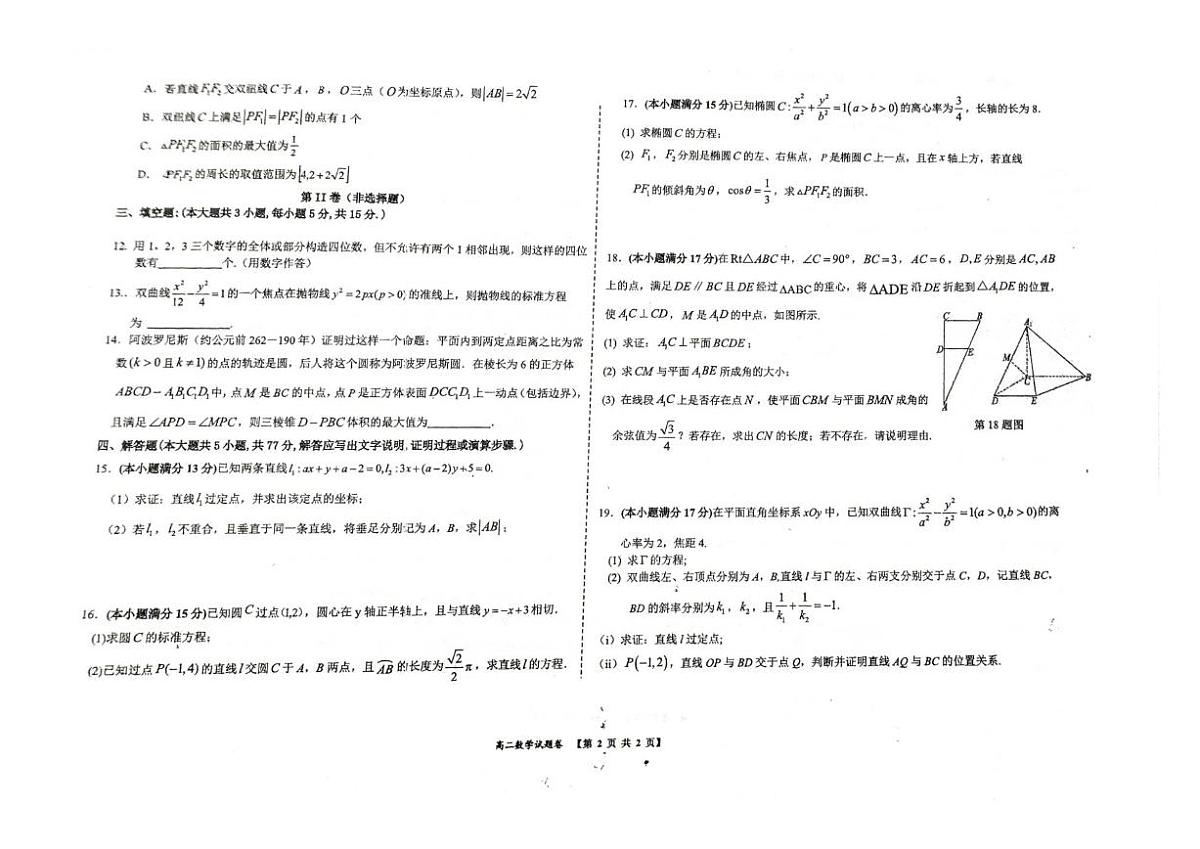 A. 若直线F₁F₂交双纽线C于A，B，O三点（O为坐标原点），则|AB|=2√2
B. 双纽线C上满足|PF₁|=|PF₂|的点有1个
C. △PF₁F₂的面积的最大值为1/2
D. △PF₁F₂的周长的取值范围为[4,2+2√2]
第II卷（非选择题）
三、填空题:(本大题共3小题,每小题5分,共15分.)
12. 用1，2，3三个数字的全体或部分构造四位数，但不允许有两个1相邻出现，则这样的四位
数有__________个.（用数字作答）
13.. 双曲线x²/12-y²/4=1的一个焦点在抛物线y²=2px(p>0)的准线上，则抛物线的标准方程
为 __________.
14. 阿波罗尼斯（约公元前262－190年）证明过这样一个命题：平面内到两定点距离之比为常
数(k>0且k≠1)的点的轨迹是圆，后人将这个圆称为阿波罗尼斯圆．在棱长为6的正方体
ABCD－A₁B₁C₁D₁中,点M是BC的中点,点P是正方体表面DCC₁D₁上一动点(包括边界),
且满足∠APD=∠MPC，则三棱锥D－PBC体积的最大值为__________.
四、解答题(本大题共5小题,共77分,解答应写出文字说明,证明过程或演算步骤.)
15．(本小题满分13分)已知两条直线l₁:ax+y+a-2=0,l₂:3x+(a-2)y+5=0.
（1）求证：直线l₁过定点，并求出该定点的坐标；
（2）若l₁，l₂不重合，且垂直于同一条直线，将垂足分别记为A，B，求|AB|；
16．(本小题满分15分)已知圆C过点(1,2)，圆心在y轴正半轴上，且与直线y=-x+3相切.
(1)求圆C的标准方程；
(2)已知过点P(-1,4)的直线l交圆C于A，B两点，且AB⌢的长度为√2/2 π，求直线l的方程.
17．(本小题满分15分)已知椭圆C:x²/a²+y²/b²=1(a>b>0)的离心率为3/4，长轴的长为8.
(1) 求椭圆C的方程；
(2) F₁，F₂分别是椭圆C的左、右焦点，P是椭圆C上一点，且在x轴上方，若直线
PF₁的倾斜角为θ，cosθ=1/3，求△PF₁F₂的面积．
18．(本小题满分17分)在Rt△ABC中，∠C=90°，BC=3，AC=6，D,E分别是AC,AB
上的点，满足DE∥BC且DE经过△ABC的重心，将△ADE沿DE折起到△A₁DE的位置，
使A₁C⊥CD，M是A₁D的中点，如图所示.
(1) 求证：A₁C⊥平面BCDE；
(2) 求CM与平面A₁BE所成角的大小；
(3) 在线段A₁C上是否存在点N，使平面CBM与平面BMN成角的
余弦值为√3/4？若存在，求出CN的长度；若不存在，请说明理由.
C B
D E
A
A₁
M
C
B
D E
第18题图
19．(本小题满分17分)在平面直角坐标系xOy中，已知双曲线Γ:x²/a²-y²/b²=1(a>0,b>0)的离
心率为2，焦距4.
(1) 求Γ的方程;
(2) 双曲线左、右顶点分别为A，B,直线l与Γ的左、右两支分别交于点C，D，记直线BC，
BD的斜率分别为k₁，k₂，且1/k₁+1/k₂=-1.
(i）求证：直线l过定点;
(ii）P(-1,2)，直线OP与BD交于点Q，判断并证明直线AQ与BC的位置关系.
高二数学试题卷 【第2页 共2页】